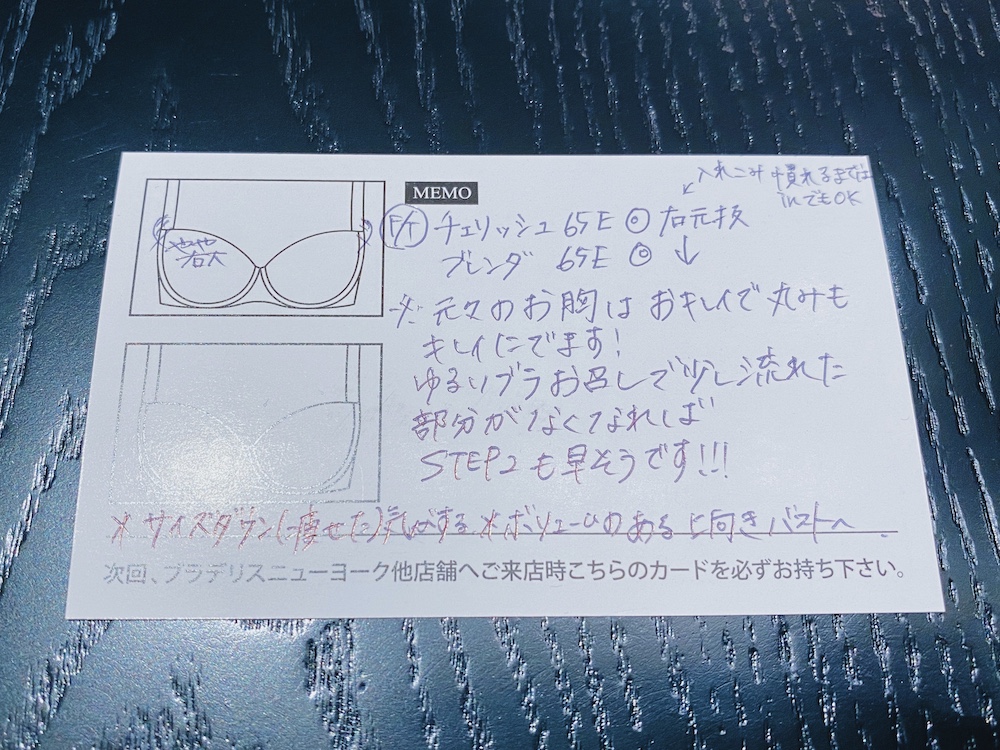 MEMO
入れこみ 慣れるまでは
inでもOK
F/T チェリッシュ 65E ◎ 右元抜
ブレンダ 65E ◎ ↓
元々のお胸はおキレイで丸みも
キレイにでます!
ゆるいブラお召しで少し流れた
部分がなくなれば
STEP2も早そうです!!!
*サイズダウン(痩せた)気がする *ボリュームのある上向きバストへ
次回、ブラデリスニューヨーク他店舗へご来店時こちらのカードを必ずお持ち下さい。